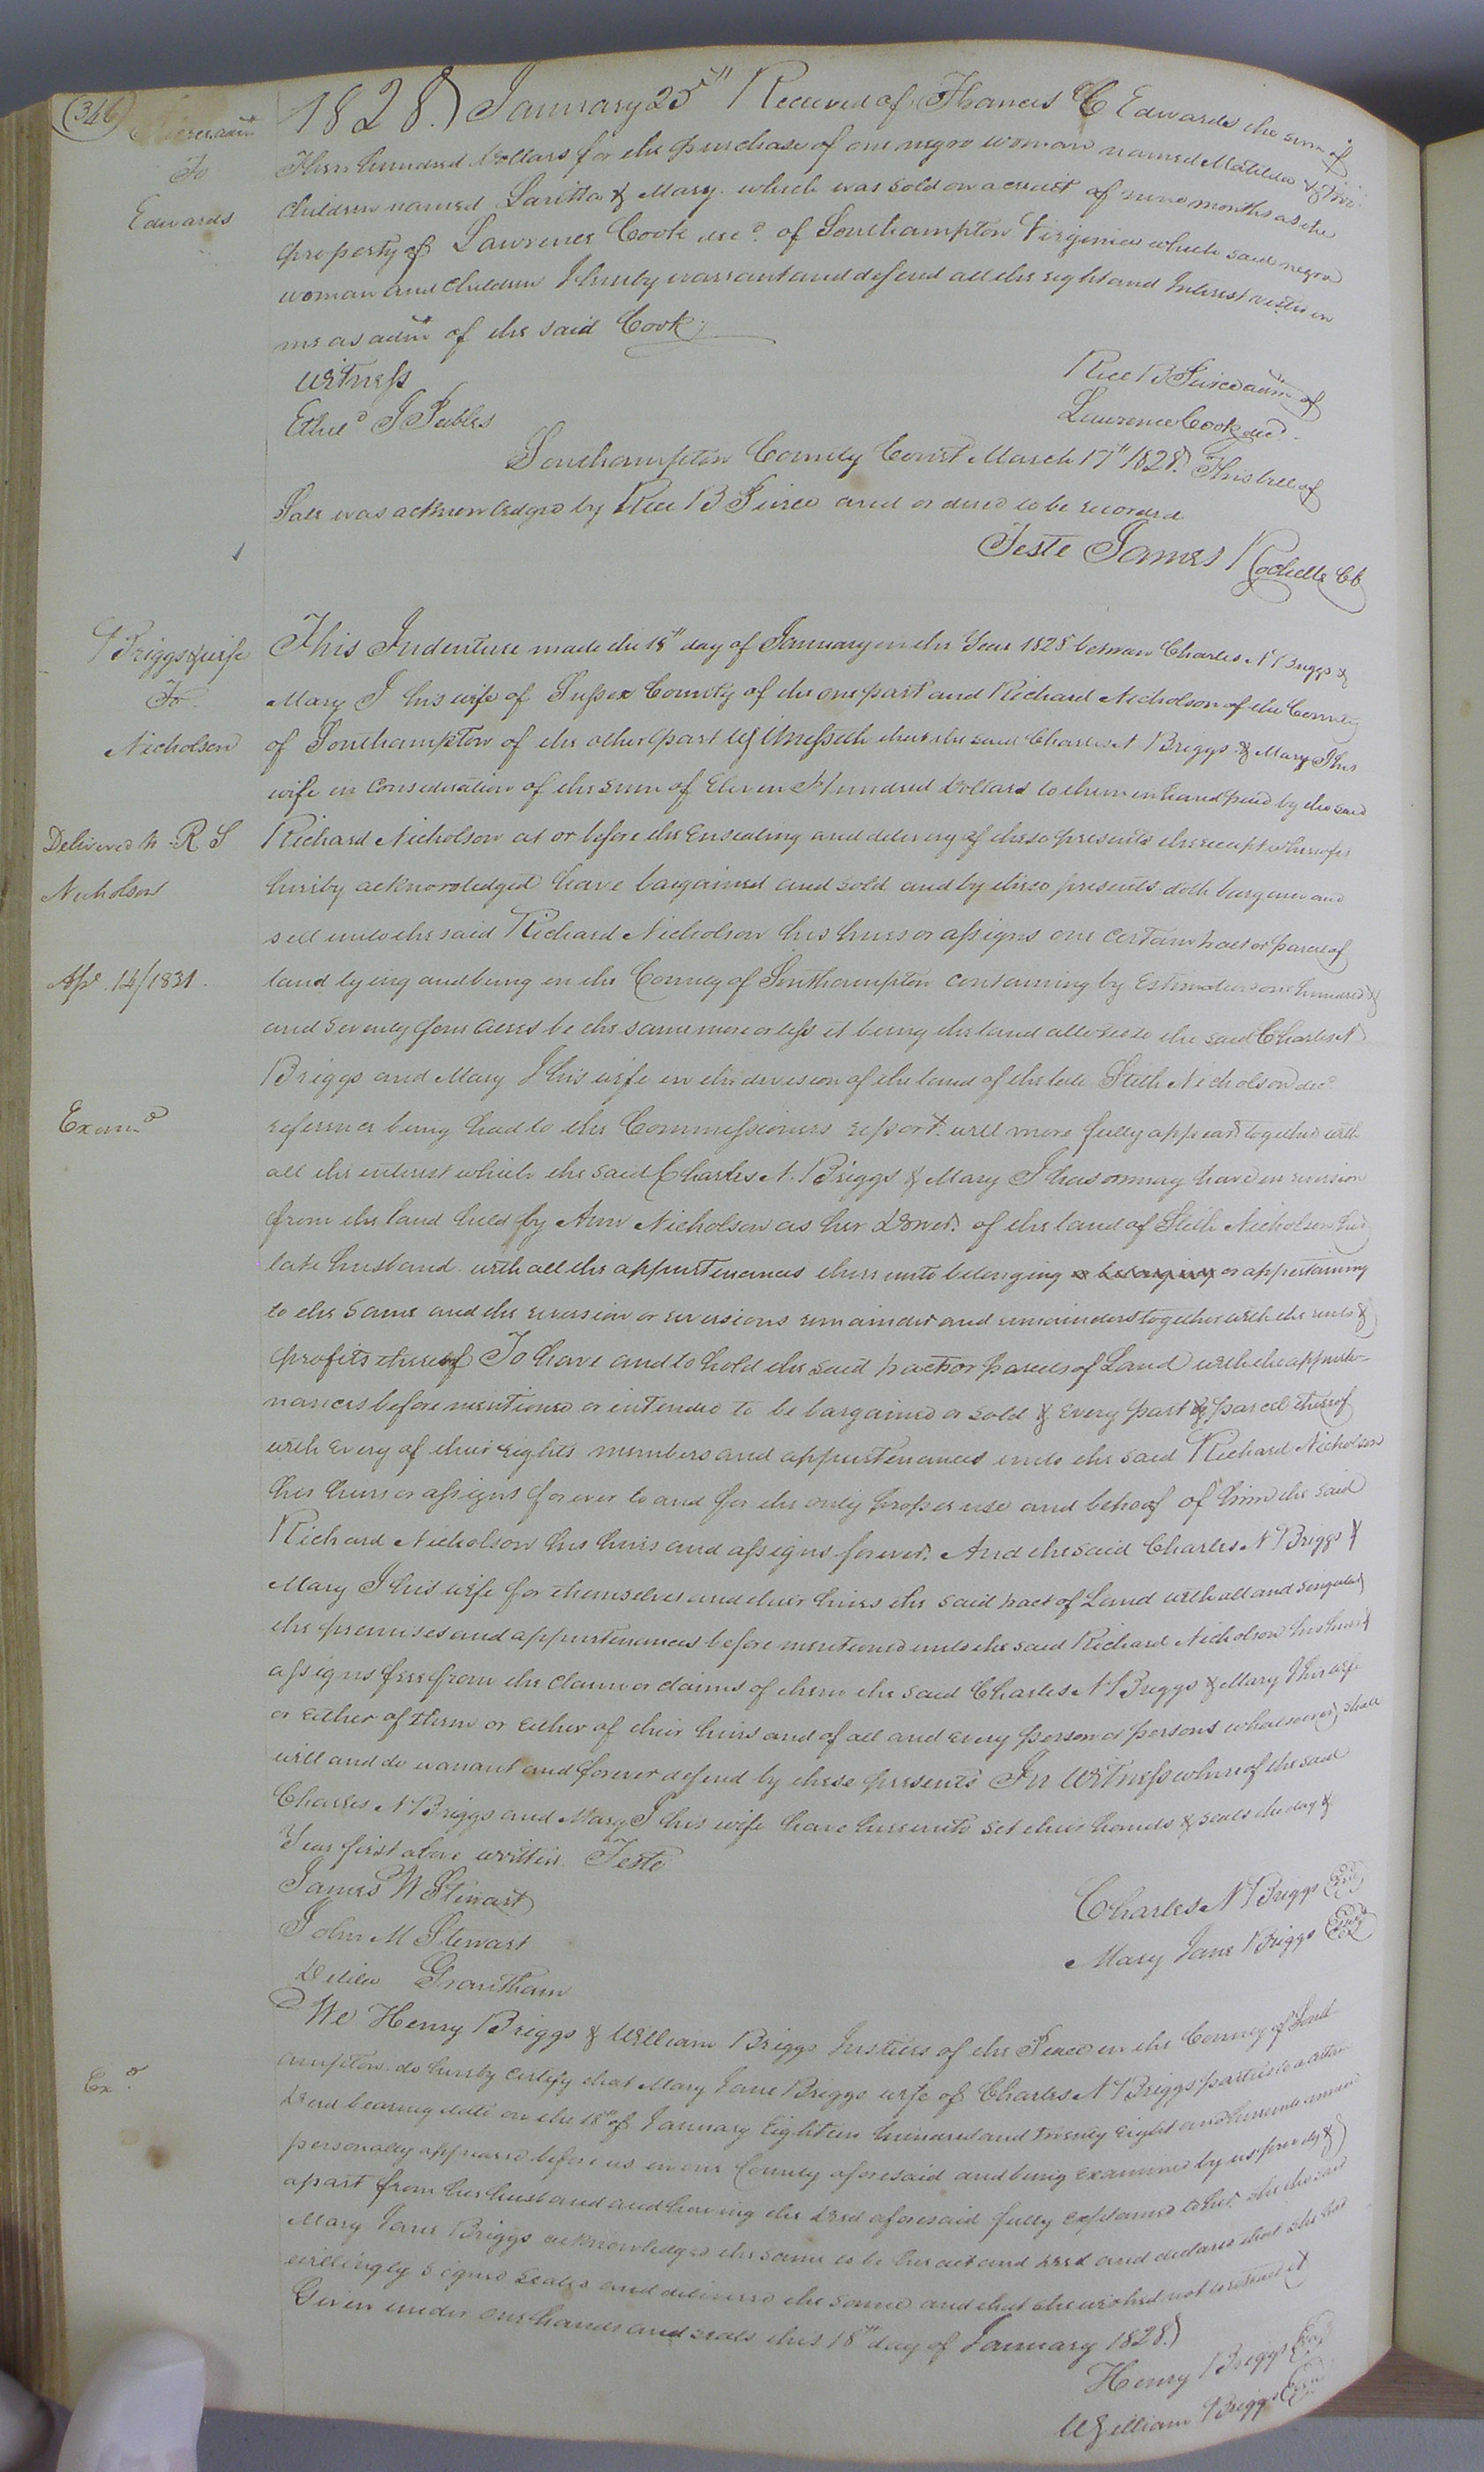 (346)
admr
To
Edwards
1828.) January 25th Received of Thomas C Edwards the sum of
Three hundred Dollars for the purchase of one negro woman named Matilda & Two
children named Saritta & Mary. which was sold on a credit of nine months as the
property of Lawrence Cook decd. of Southampton Virginia which said negro
woman and children I hereby warrant and defend all the right and Interest vested in
me as admr of the said Cook.
Witness
Etheld J Peebles
Rice B Pierce admr of
Lawrence Cook decd.
Southampton County Court March 17th 1828. This bill of
Sale was acknowledged by Rice B Pierce and ordered to be recorded
Teste James Rochelle Ck
Briggs & wife
To
Nicholson
Delivered to R S
Nicholson
Apr. 14/1831.
Examd
This Indenture made the 18th day of January in the Year 1828 between Charles N Briggs &
Mary J his wife of Sussex County of the one part and Richard Nicholson of the County
of Southampton of the other part Witnesseth that the said Charles N. Briggs & Mary J his
wife in Consideration of the sum of Eleven Hundred Dollars to them in hand paid by the said
Richard Nicholson at or before the Ensealing and delivery of these presents the receipt whereof is
hereby acknowledged have bargained and sold and by these presents doth bargain and
sell unto the said Richard Nicholson his heirs or assigns one certain tract or parcel of
land lying and being in the County of Southampton containing by Estimation one hundred &
and Seventy four acres be the same more or less it being the land allotted to the said Charles N
Briggs and Mary J his wife in the division of the land of the late Stith Nicholson decd
reference being had to the Commissioners report will more fully appear together with
all the interest which the said Charles N. Briggs & Mary J has or may have in reversion
from the land held by Ann Nicholson as her Dower. of the land of Stith Nicholson her
late husband. with all the appurtenances there unto belonging or belonging or appertaining
to the same and the reversion or reversions remainder and remainders together with the rents &
profits thereof To have and to hold the said tract or parcels of Land with the appurte-
nances before mentioned or intended to be bargained or sold & every part & parcel thereof
with every of their rights members and appurtenances unto the said Richard Nicholson
his heirs or assigns forever to and for the only proper use and behoof of him the said
Richard Nicholson his heirs and assigns forever. And the said Charles N Briggs &
Mary J his wife for themselves and their heirs the said tract of Land with all and singular
the premises and appurtenances before mentioned unto the said Richard Nicholson his heirs &
assigns free from the claim or claims of them the said Charles N Briggs & Mary J his wife
or either of them or either of their heirs and of all and every person or persons whatsoever, shall
will and do warrant and forever defend by these presents In Witness whereof the said
Charles N Briggs and Mary J his wife have hereunto set their hands & seals the day &
Year first above written. Teste
James W Stewart
John M Stewart
Grantham
Charles N Briggs Seal
Mary Jane Briggs Seal
Exd.
We Henry Briggs & William Briggs Justices of the Peace in the County of South
ampton do hereby certify that Mary Jane Briggs wife of Charles N Briggs parties to a certain
Deed bearing date on the 18th of January Eighteen hundred and twenty eight and hereunto annexed
personally appeared before us in our County aforesaid and being examined by us privily &
apart from her husband and having the Deed aforesaid fully explained to her. she the said
Mary Jane Briggs acknowledged the same to be her act and deed and declared that she had
willingly signed sealed and delivered the same and that she wished not to retract it
Given under our hands and seals this 18th day of January 1828.)
Henry Briggs Seal
William Briggs Seal